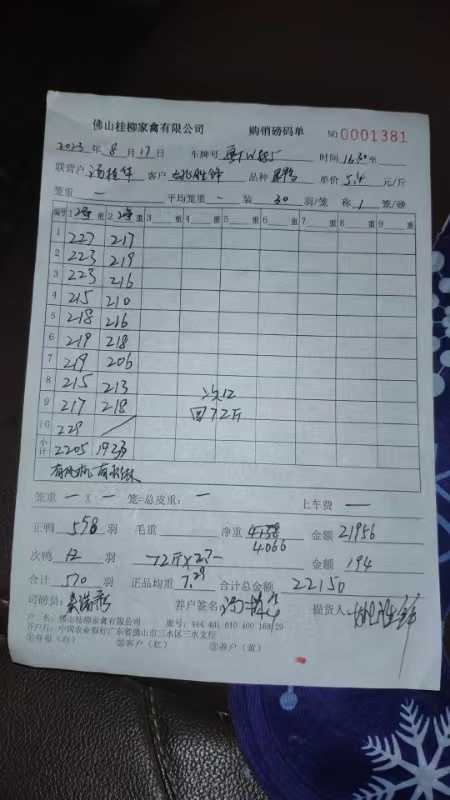 佛山桂柳家禽有限公司 购销磅码单 NO 0001381
2023年8月17日 车牌号 时间 16:30
联营户 客户 品种 单价 5.4 元/斤
笼重 一 平均笼重 一 装 30 羽/笼 称 1 笼/磅
编号 1 重 2 重 3 重 4 重 5 重 6 重 7 重 8 重 9 重
1 227 217
2 223 219
3 223 216
4 215 210
5 218 216
6 219 218
7 219 206
8 215 213 次12
9 217 218 回72斤
10 229 /
小计 2205 1933
笼重 一 X 一 笼=总皮重: 一 上车费 一
正鸭 558 羽 毛重 净重 4138 4066 金额 21956
次鸭 12 羽 72斤×2.7- 金额 194
合计 570 羽 正品均重 7.29 合计总金额 22150
司磅员: 养户签名: 提货人:
户 名: 佛山桂柳家禽有限公司 账号: 444 401 010 400 168 29
开户行: 中国农业银行广东省佛山市三水区三水支行
①存根(白) ②客户(红) ③养户(黄)